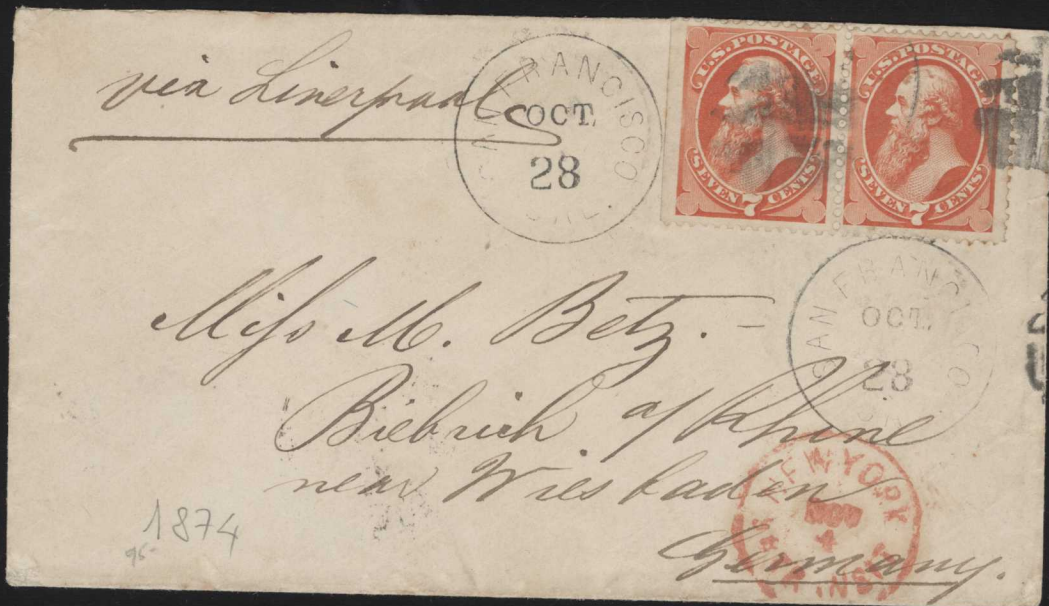 via Liverpool
SAN FRANCISCO
OCT.
28
CAL.
U.S. POSTAGE
SEVEN 7 CENTS
U.S. POSTAGE
SEVEN 7 CENTS
SAN FRANCISCO
OCT.
28
Miss M. Betz. –
Biebrich a/ Rhine
near Wiesbaden
Germany.
NEW YORK
NOV
4
1874
95